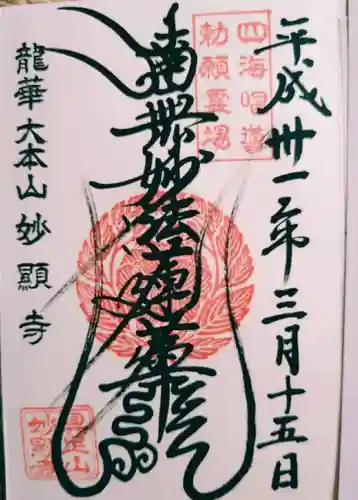 平成卅一年三月十五日
四海唱導
勅願霊場
南無妙法蓮華経
龍華大本山妙顯寺